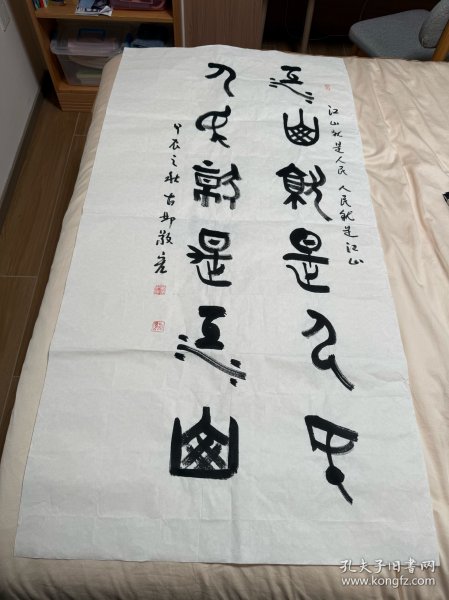 江山就是人民 人民就是江山
江山就是人民
人民就是江山
甲辰之秋古邺敬彦
孔夫子旧书网
www.kongfz.com